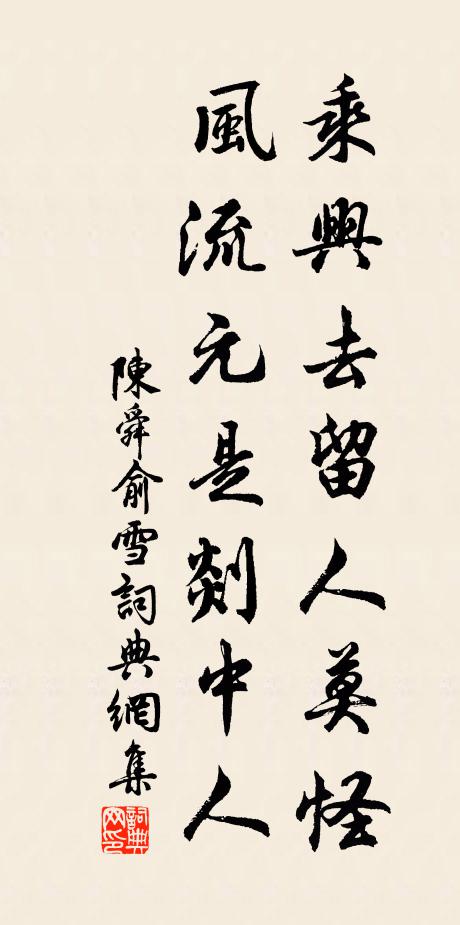 乘興去留人莫怪
風流元是剡中人
陳舜俞雪詞典網集
詞典網印